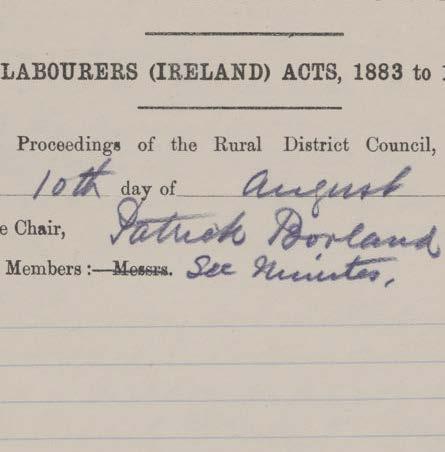 LABOURERS (IRELAND) ACTS, 1883 to 1
Proceedings of the Rural District Council,
10th day of August
e Chair, Patrick Borland
Members :—Messrs. See Minutes.